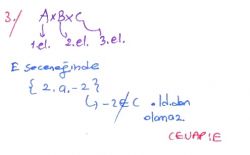 3./ A×B×C
1.el. 2.el. 3.el.
E seçeneğinde
{2, a, -2}
↳ -2 ∉ C olduğu
olamaz.
CEVAP: E